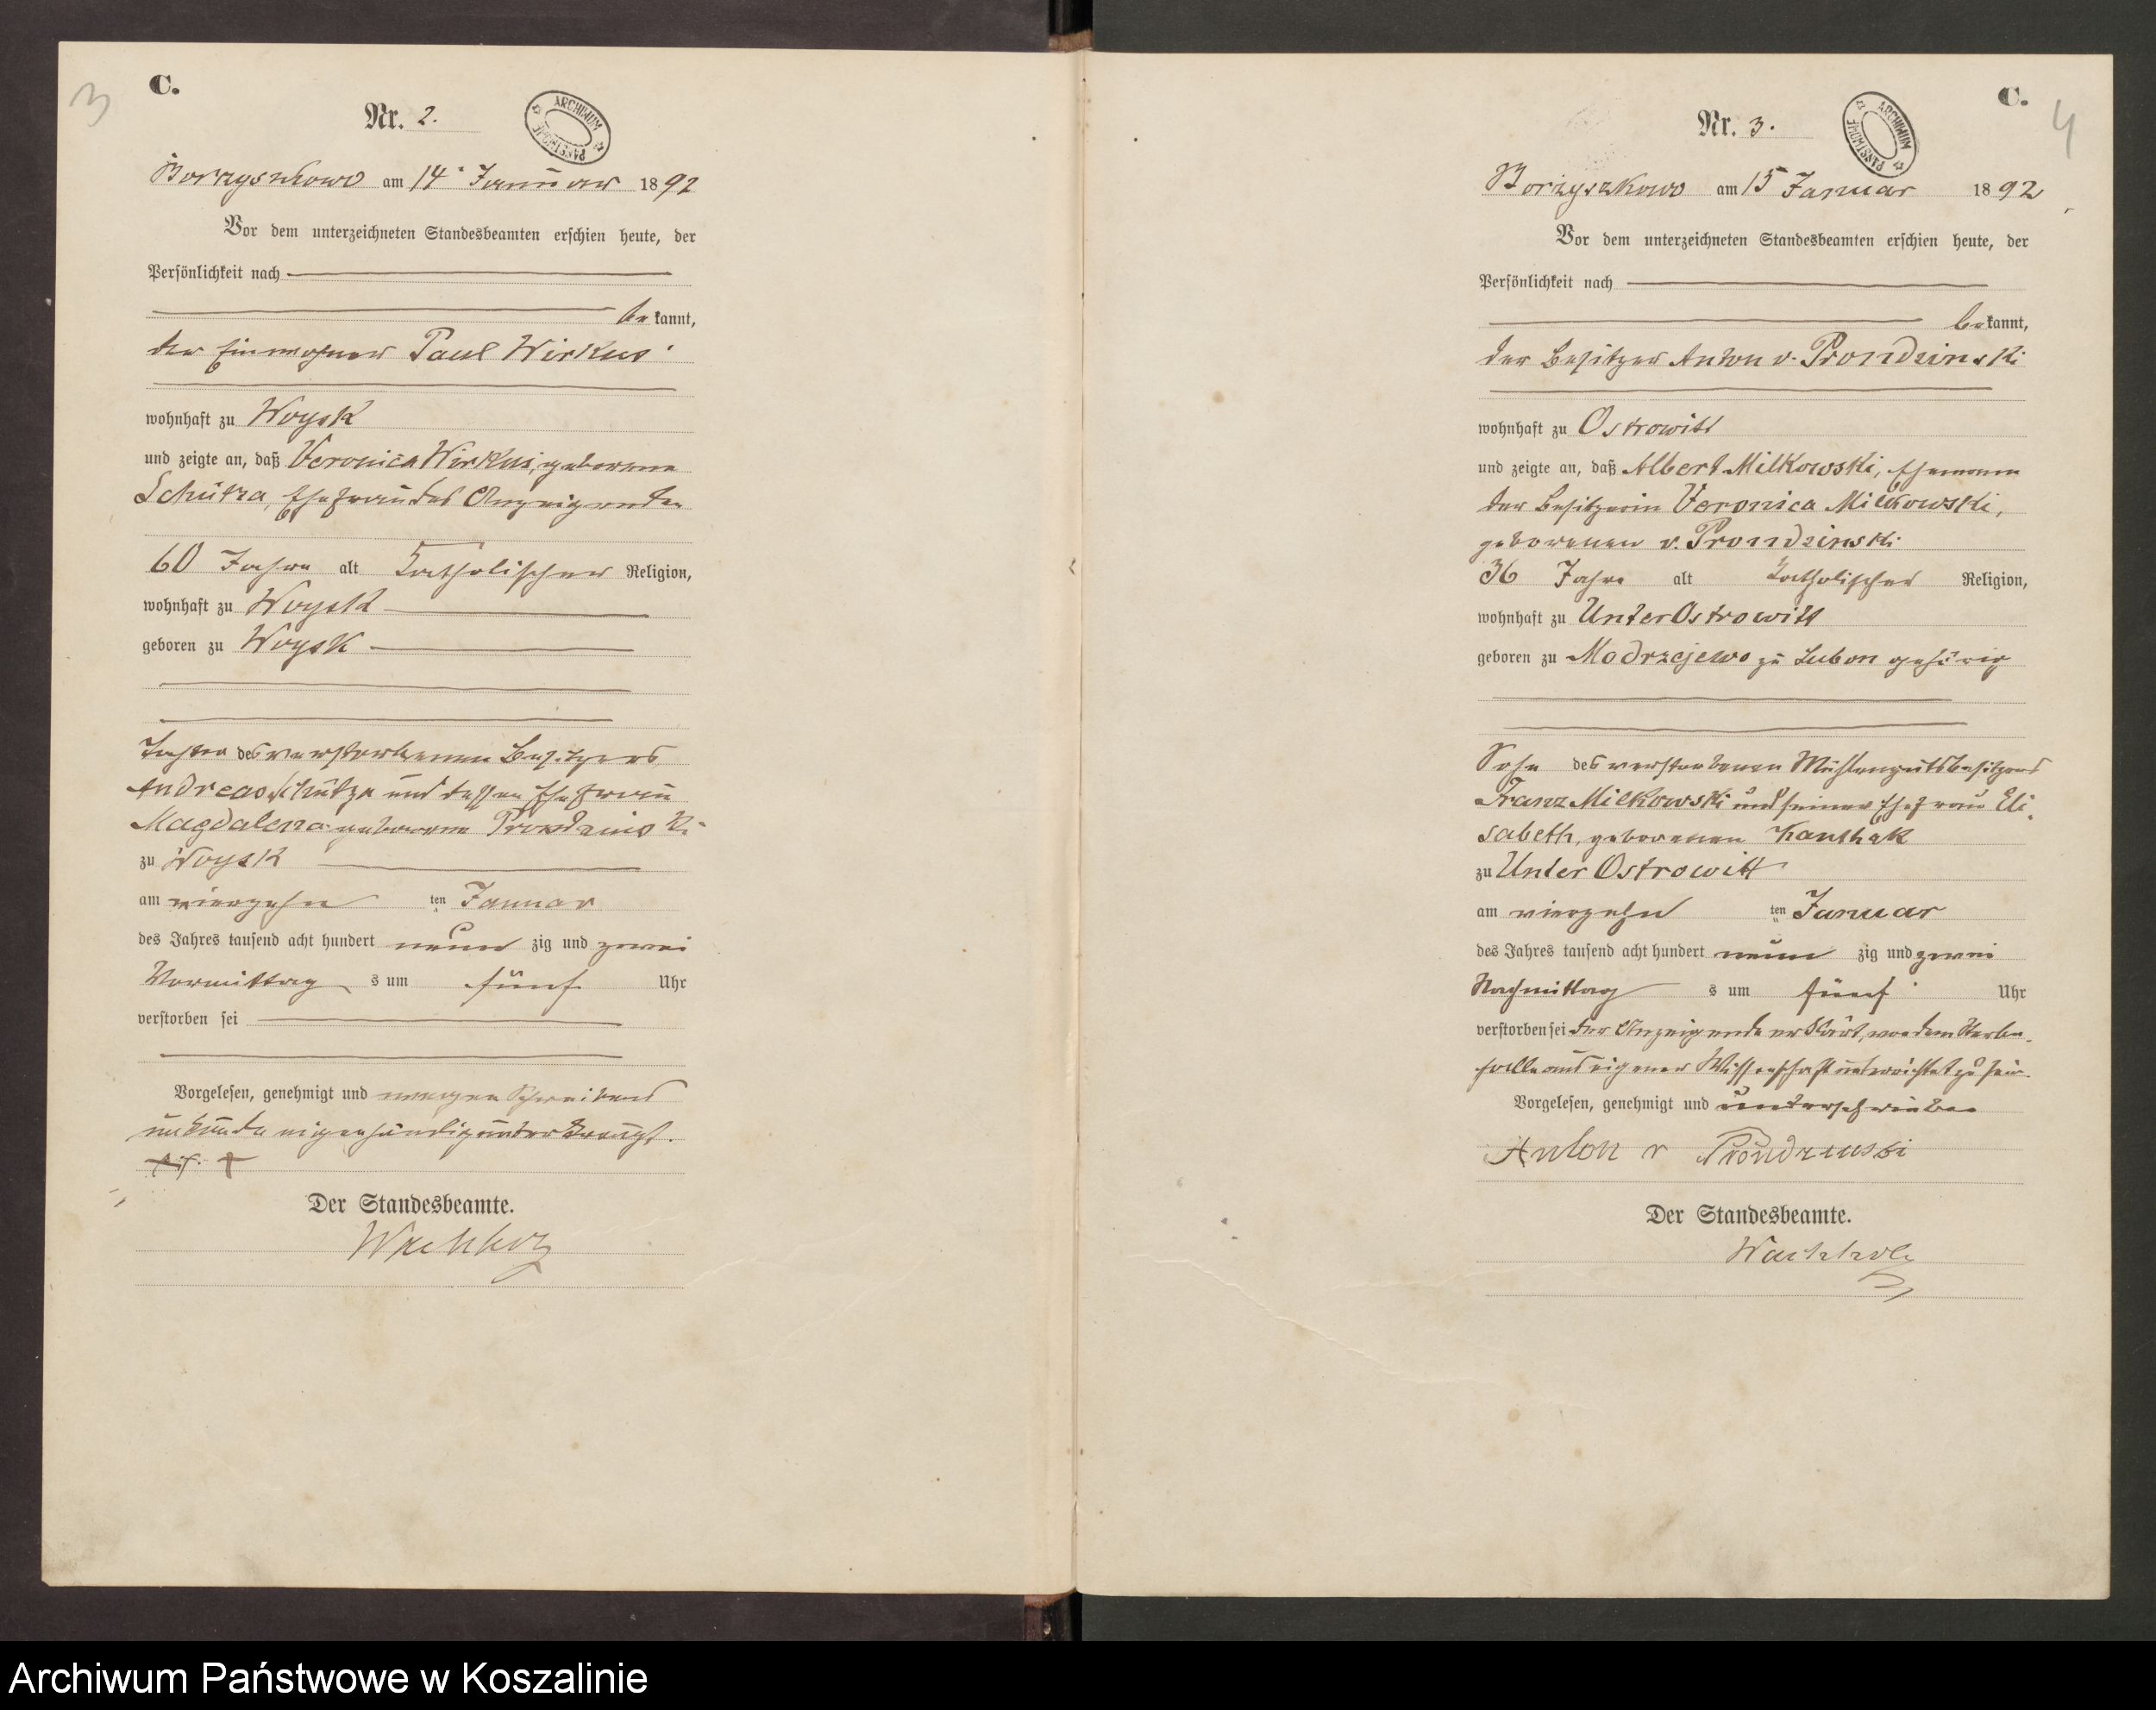 3
C.
Nr. 2.
ARCHIWUM PAŃSTWOWE
Borzyszkowo am 14. Januar 1892
Vor dem unterzeichneten Standesbeamten erschien heute, der
Persönlichkeit nach
bekannt,
der Einwohner Paul Wirkus
wohnhaft zu Woysk
und zeigte an, daß Veronica Wirkus, geborene
Schütza, Ehefrau des Anzeigenden
60 Jahre alt katholischer Religion,
wohnhaft zu Woysk
geboren zu Woysk
Tochter des verstorbenen Besitzers
Andreas Schütza und dessen Ehefrau
Magdalena geborene Prondzinski
zu Woysk
am vierzehn ten Januar
des Jahres tausend acht hundert neun zig und zwei
Vormittag s um fünf Uhr
verstorben sei
Vorgelesen, genehmigt und wegen Schreibens
unkunde eigenhändig unterkreuzt.
†††. †
Der Standesbeamte.
Wachholz
C.
4
Nr. 3.
ARCHIWUM PAŃSTWOWE
Borzyszkowo am 15 Januar 1892
Vor dem unterzeichneten Standesbeamten erschien heute, der
Persönlichkeit nach
bekannt,
der Besitzer Anton v. Prondzinski
wohnhaft zu Ostrowitt
und zeigte an, daß Albert Milkowski, Ehemann
der Besitzerin Veronica Milkowski,
geborenen v. Prondzinski
36 Jahre alt katholischer Religion,
wohnhaft zu Unter Ostrowitt
geboren zu Modrzejewo zu Lubon gehörig
Sohn des verstorbenen Mühlengutsbesitzers
Franz Milkowski und seiner Ehefrau Eli-
sabeth, geborenen Kanthak
zu Unter Ostrowitt
am vierzehn ten Januar
des Jahres tausend acht hundert neun zig und zwei
Nachmittag s um fünf Uhr
verstorben sei der Anzeigende erklärt, von dem Sterbe-
falle aus eigener Wissenschaft unterrichtet zu sein.
Vorgelesen, genehmigt und unterschrieben
Anton v Prondzinski
Der Standesbeamte.
Wachholz
Archiwum Państwowe w Koszalinie